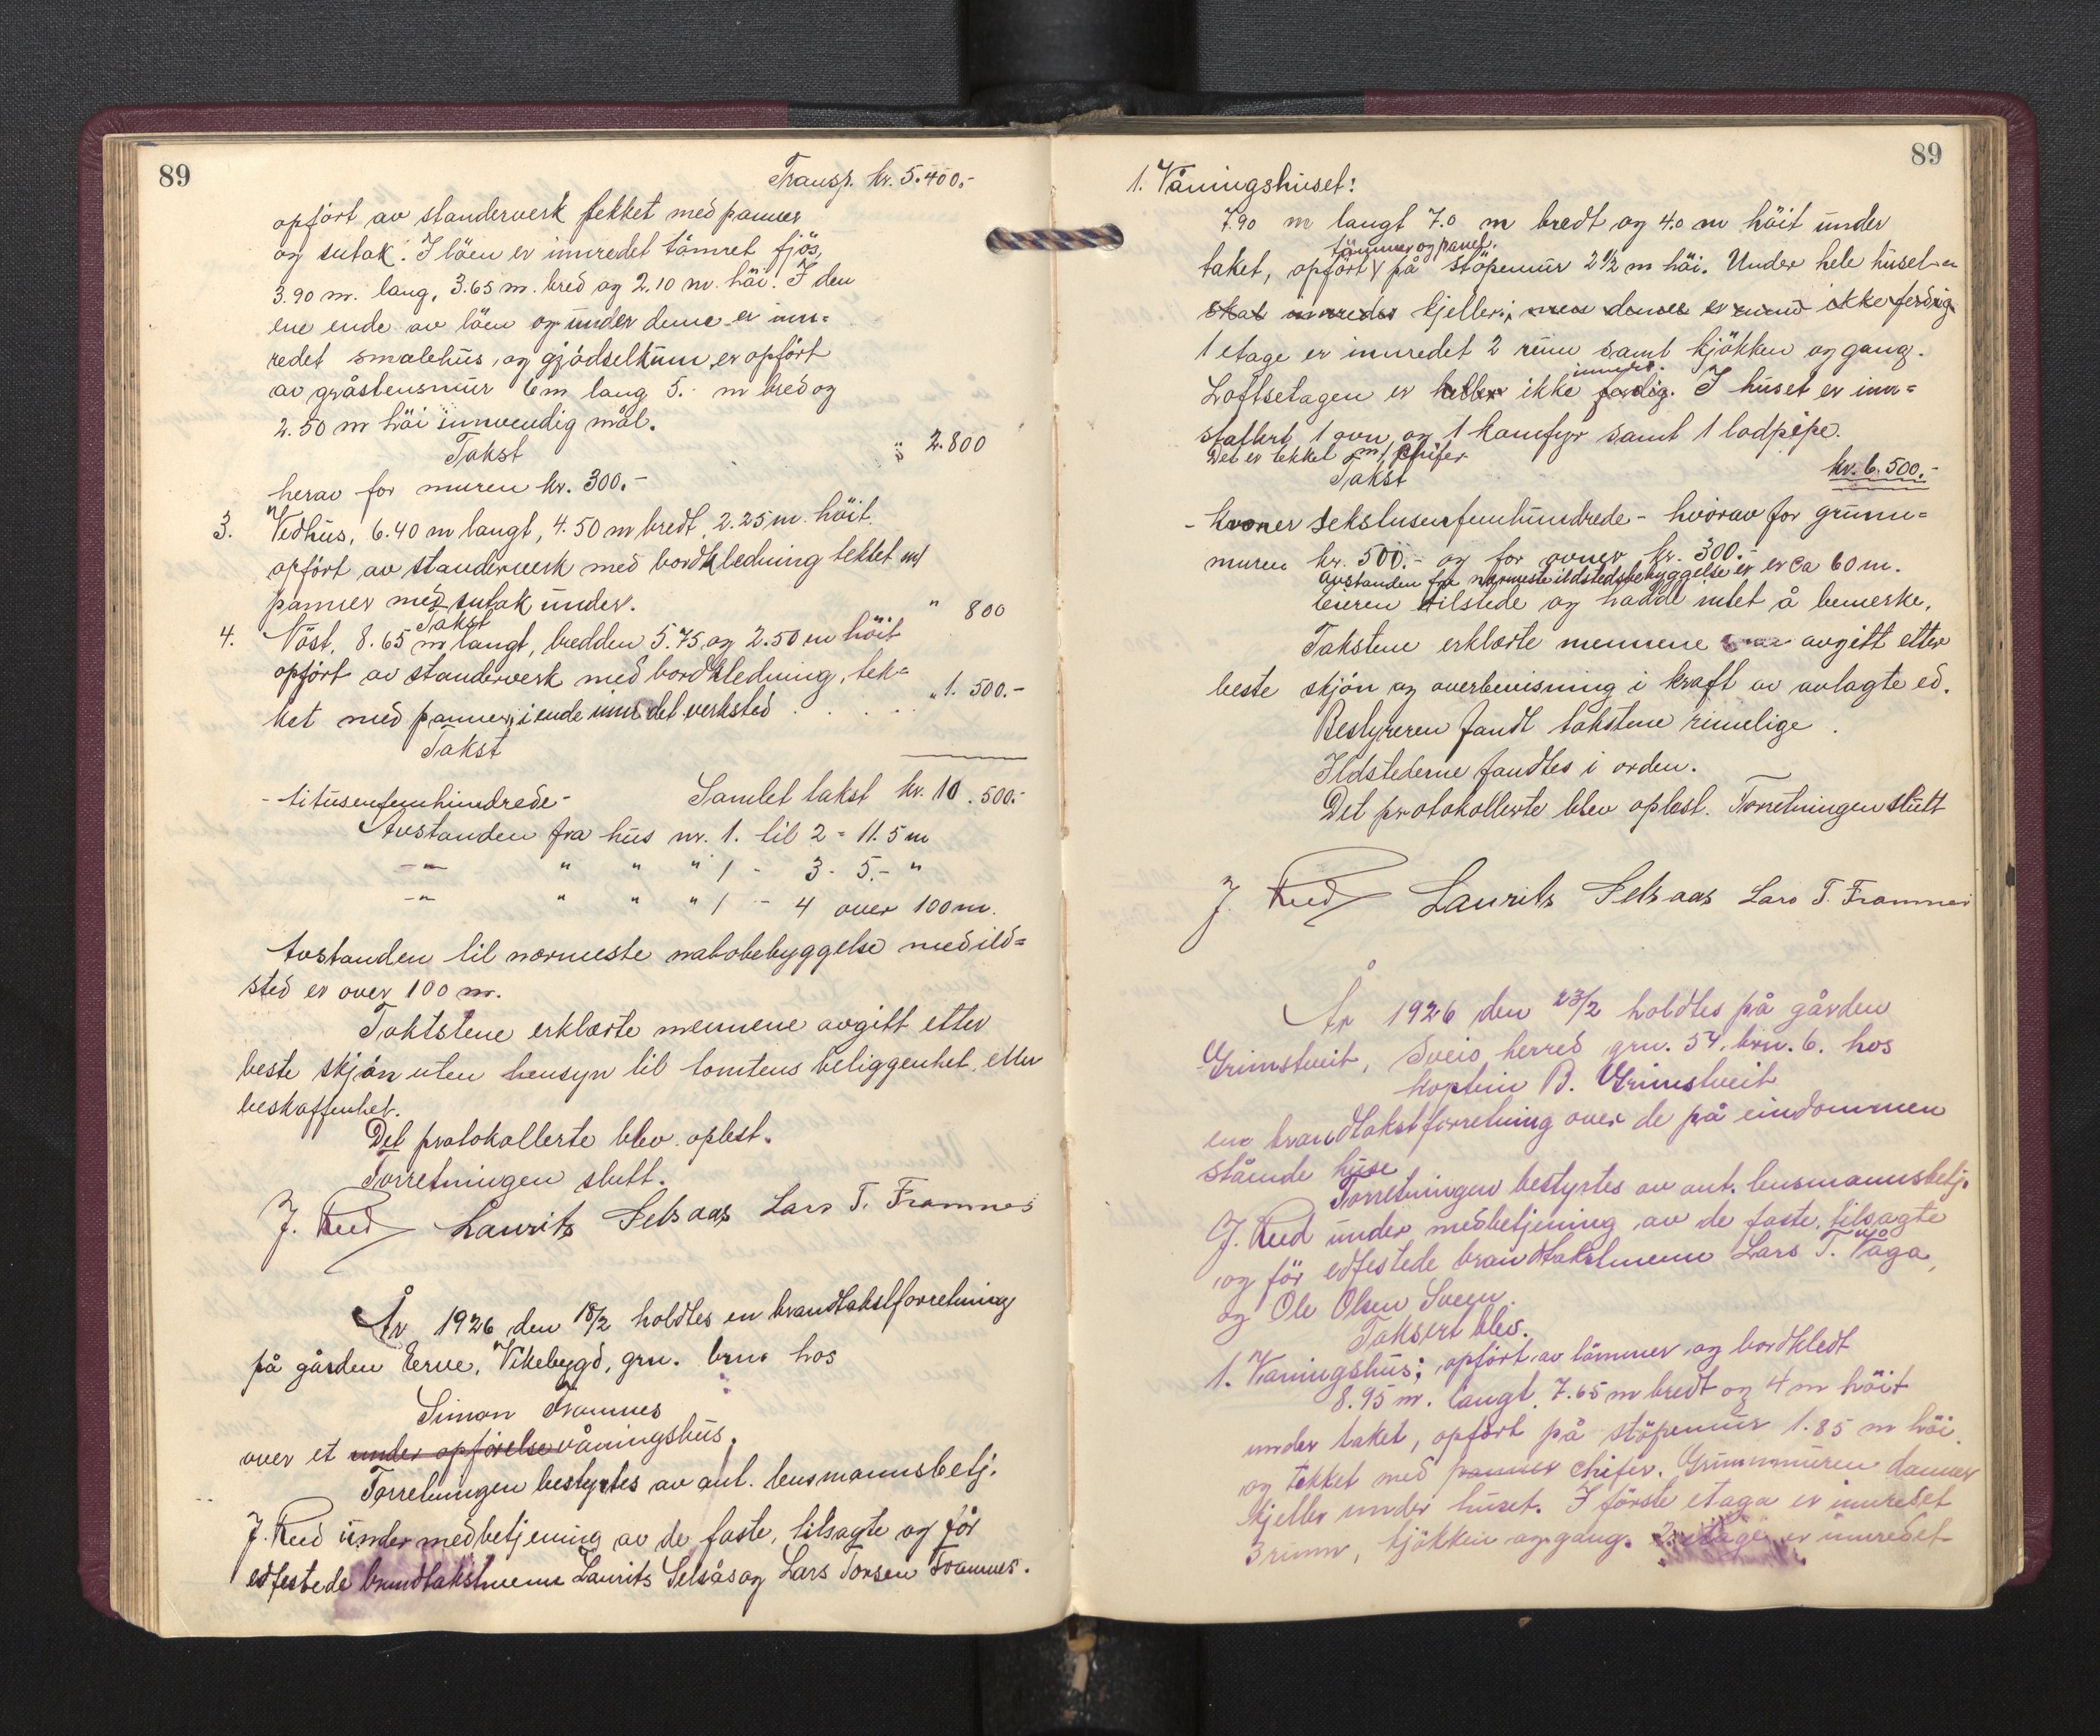 89
Transp. kr. 5.400,-
opført av standerverk tekket med panner
og sutak. I løen er innredet tømret fjøs,
3.90 m. lang, 3.65 m. bred og 2.10 m. høi. I den
ene ende av løen og under denne er inn=
redet smalehus, og gjødselkum er opført
av gråstensmur 6 m lang 5. m bred og
2.50 m høi innvendig mål.
Takst " 2.800
herav for muren kr. 300.-
3. Vedhus, 6.40 m langt, 4.50 m bredt, 2.25 m. høit
opført av standerverk med bordkledning tekket m/
panner med sutak under.
Takst " 800
4. Nøst, 8.65 m langt, bredden 5.75 og 2.50 m høit
opført av standerverk med bordkledning, tek=
ket med panner, i ende innr. det verksted . . . . " 1.500.-
Takst
- titusenfemhundrede - Samlet takst kr. 10.500.-
Avstanden fra hus nr. 1. til 2 = 11.5 m
-"- " " " 1 - 3 - 5.- "
-"- " " " 1 - 4 over 100 m.
Avstanden til nærmeste nabobebyggelse med ild=
sted er over 100 m.
Taktstene erklærte mennene avgitt etter
beste skjøn uten hensyn til tomtens beliggenhet eller
beskaffenhet.
Det protokollerte blev oplest.
Forretningen slutt.
J. Rud Laurits Selsaas Lars T. Framnes
År 1926 den 18/2 holdtes en brandtakstforretning
på gården Eerve, Vikebygd, grn. brn. hos
Simon Framnes
over et under opførelse våningshus.
Forretningen bestyrtes av ant. lensmannsbetj.
J. Rud under medbetjening av de faste, tilsagte og før
edfestede brandtakstmenn Laurits Selsås og Lars Torsen Framnes.
89
1. Våningshuset:
7.90 m langt 7.0 m bredt og 4.0 m høit under
tømmer og panel.
taket, opført på støpemur 2 1/2 m høi. Under hele huset er
skal innredes kjeller, men denne er ennu ikke ferdig
1 etage er innredet 2 rum samt kjøkken og gang.
innredt.
Loftsetagen er heller ikke færdig. I huset er inn=
stallert 1 ovn og 1 komfyr samt 1 lodpipe.
Det er tekket m/ Chifer
Takst kr. 6.500.-
- kroner sekstusenfemhundrede - hvorav for grunn=
muren kr. 500.- og for ovner kr. 300.-
Avstanden fra nærmeste ildstedsbebyggelse er er ca 60 m.
Eieren tilstede og hadde intet å bemerke.
Takstene erklærte mennene avgitt etter
beste skjøn og overbevisning i kraft av avlagte ed.
Bestyreren fandt takstene rimelige.
Ildstederne fandtes i orden.
Det protokollerte blev oplest. Forretningen slutt
J. Rud Laurits Selsaas Lars T. Framnes
År 1926 den 23/2 holdtes på gården
Grimstveit, Sveio herred grn. 54. brn. 6. hos
kaptein B. Grimstveit
en brandtakstforretning over de på eindommen
stående huse
Forretningen bestyrtes av ant. lensmannsbetj.
J. Rud under medbetjening av de faste, tilsagte
og før edfestede brandtakstmenn Lars T. Våga,
og Ole Olsen Sveen.
Taksert blev.
1. Våningshus; opført av tømmer og bordkledt
8.95 m. langt, 7.65 m bredt og 4 m høit
under taket, opført på støpemur 1.85 m høi
og tekket med panner chifer. Grunnmuren danner
kjeller under huset. I første etaga er innredet
3 rumm, kjøkken og gang. 2. etage er innredet